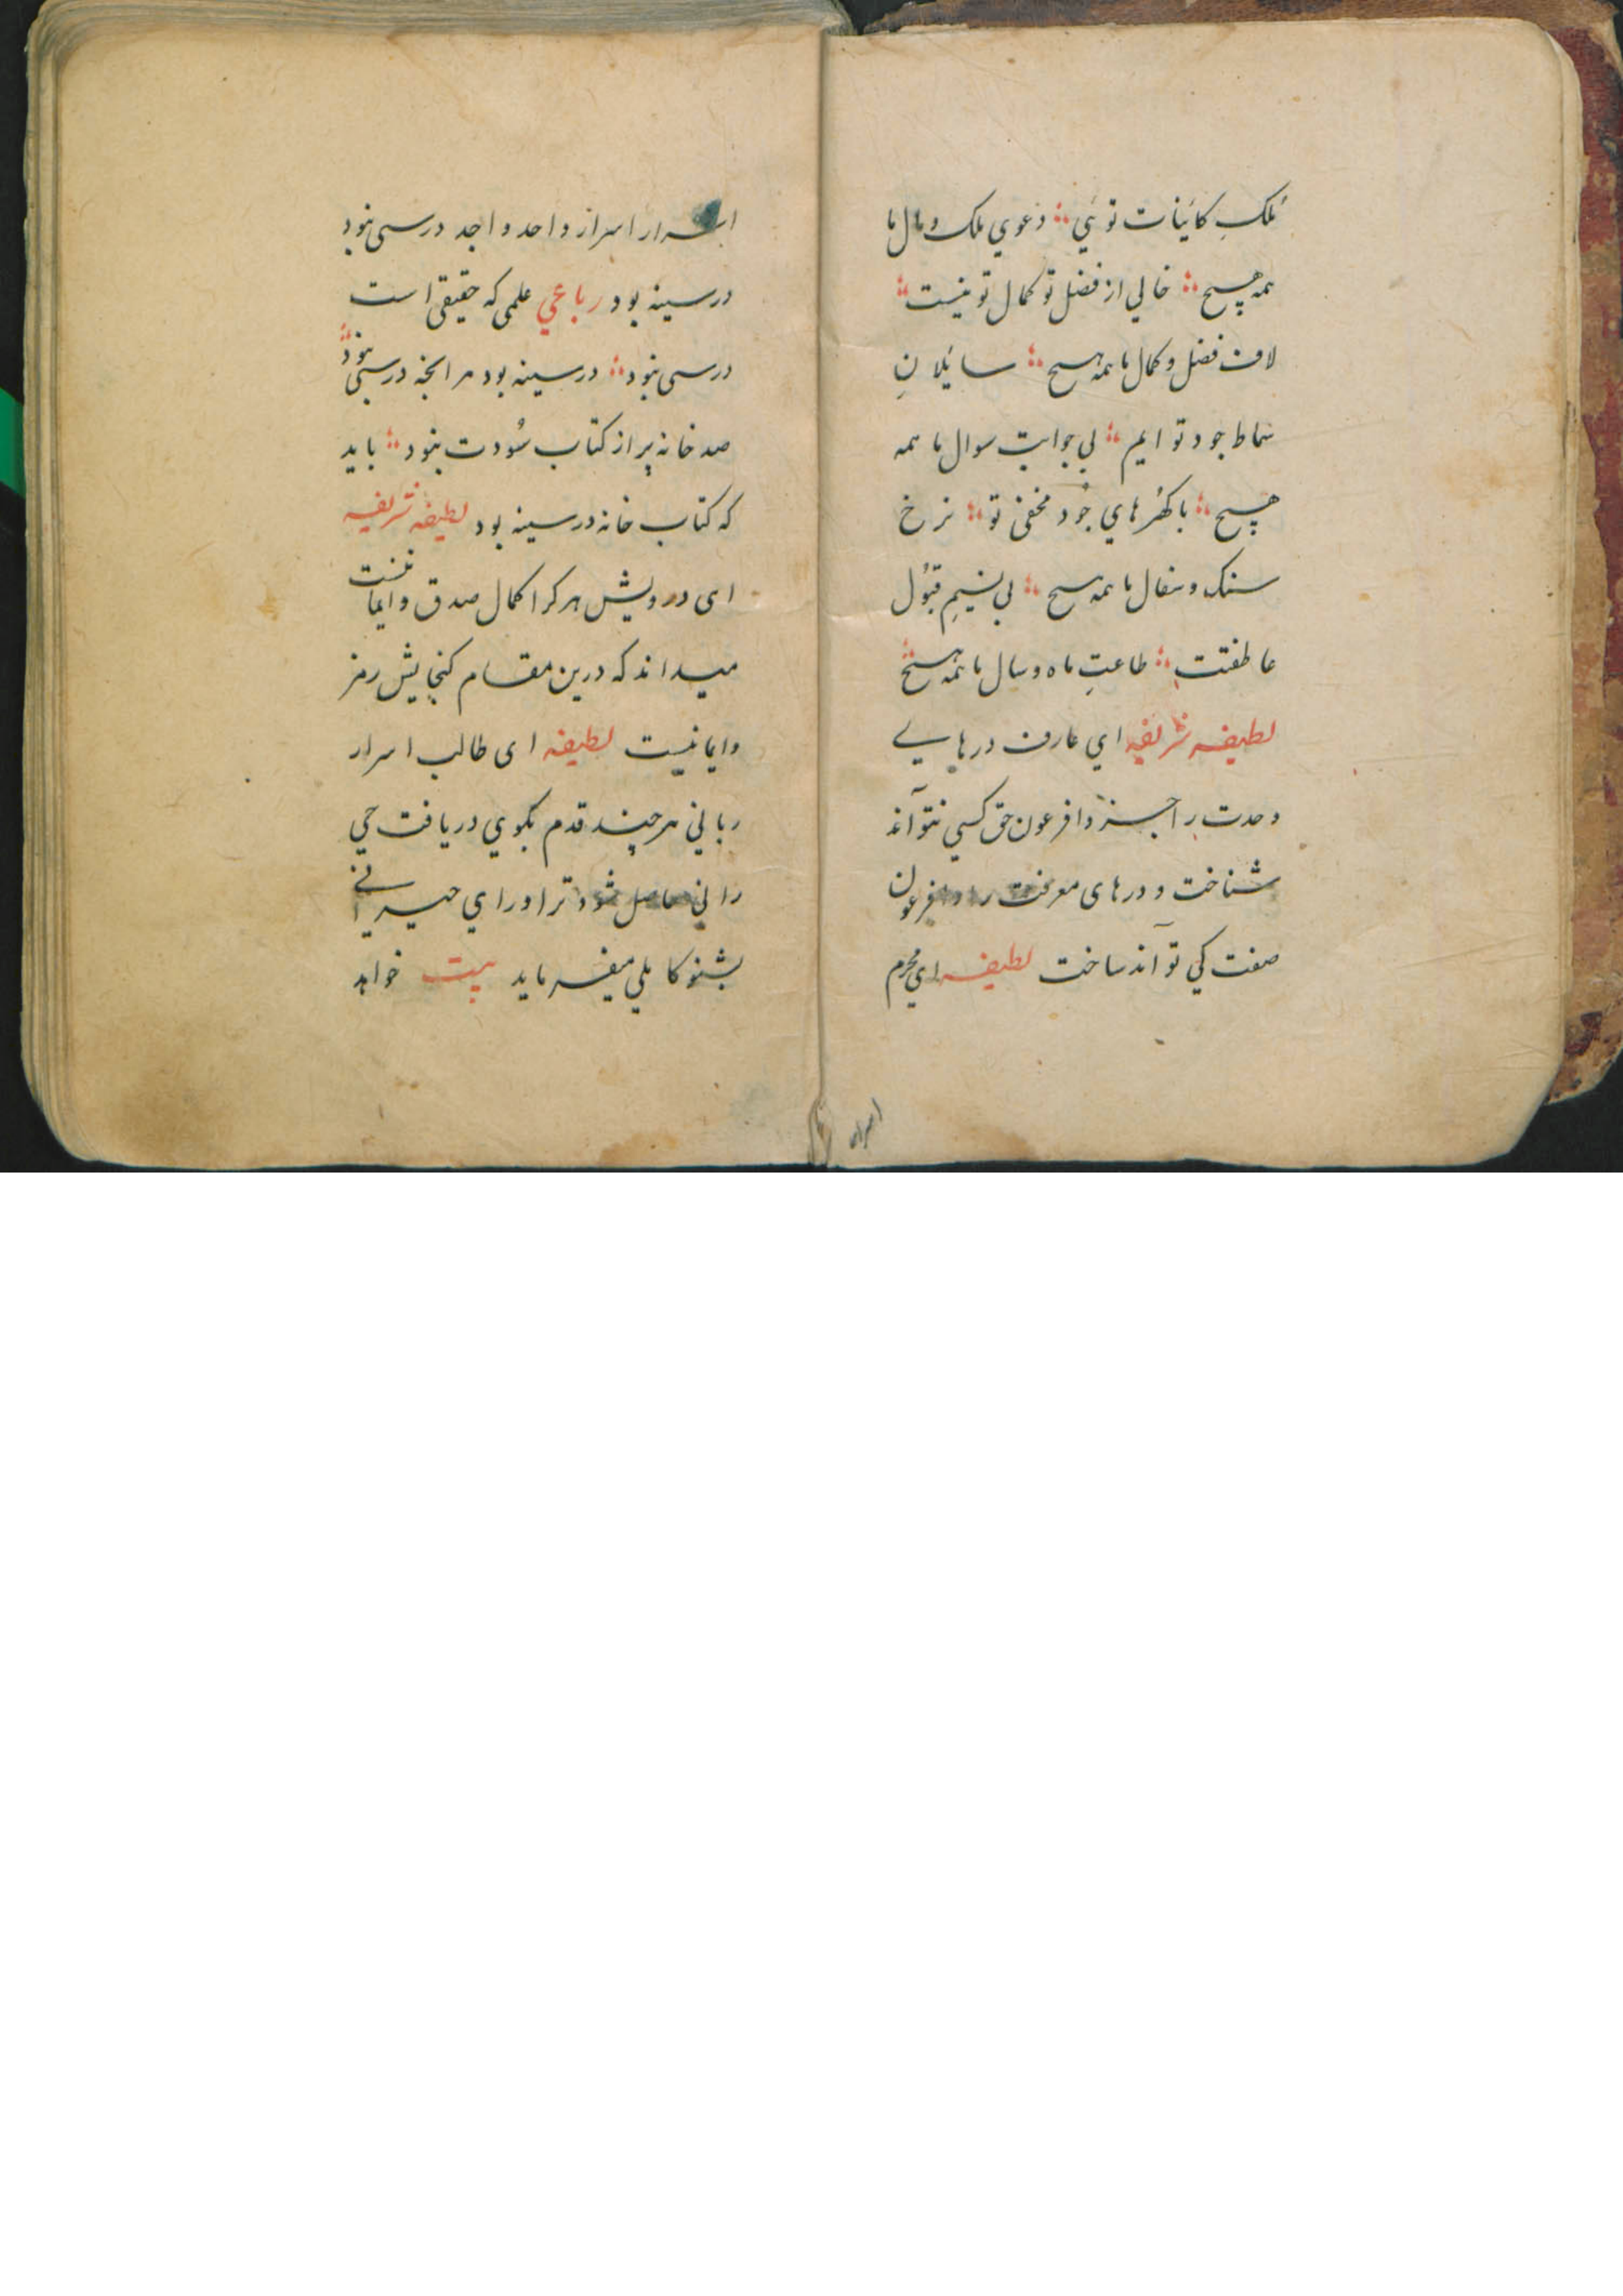 مُلکِ کائنات توئي ؞ دعوي ملک و مال ما
همه هیچ ؞ خالي از فضل تو کمال تو نیست ؞
لاف فضل و کمال ما همه هیچ ؞ سائلانِ
سماط جود تو ایم ؞ بي جوابت سوال ما همه
هیچ ؞ با کُهرهاي جُود مخفیٔ تو ؞ نرخ
سنک و سفال ما همه هیچ ؞ بي نسیمِ قبُول
عاطفتت ؞ طاعتِ ماه و سال ما همه هیچ ؞
لطیفه شریفه اي عارف درهایے
وحدت را جز وافرعون حق کسي نتوآند
شناخت و درهای معرفت را وافرعون
صفت کي توآند ساخت لطیفه اي محرم
اسرار
اسرار اسرار واحد واجد درسی نبود
در سینه بود رباعي علمی که حقیقی است
درسی نبود ؞ در سینه بود هر انچه درسی نبود ؞
صد خانه پر از کتاب سُودت نبود ؞ باید
که کتاب خانه در سینه بود لطیفه شریفه
ای درویش هر کرا کمال صدق و ایمانست
میداند که درین مقام کنجایش رمز
و ایما نیست لطیفه ای طالب اسرار
رباني هر چند قدم بکوي دریافت حي
راني حاصل شود ترا وراي حیراني
بشنو کاملي میفرماید بیت خواهد